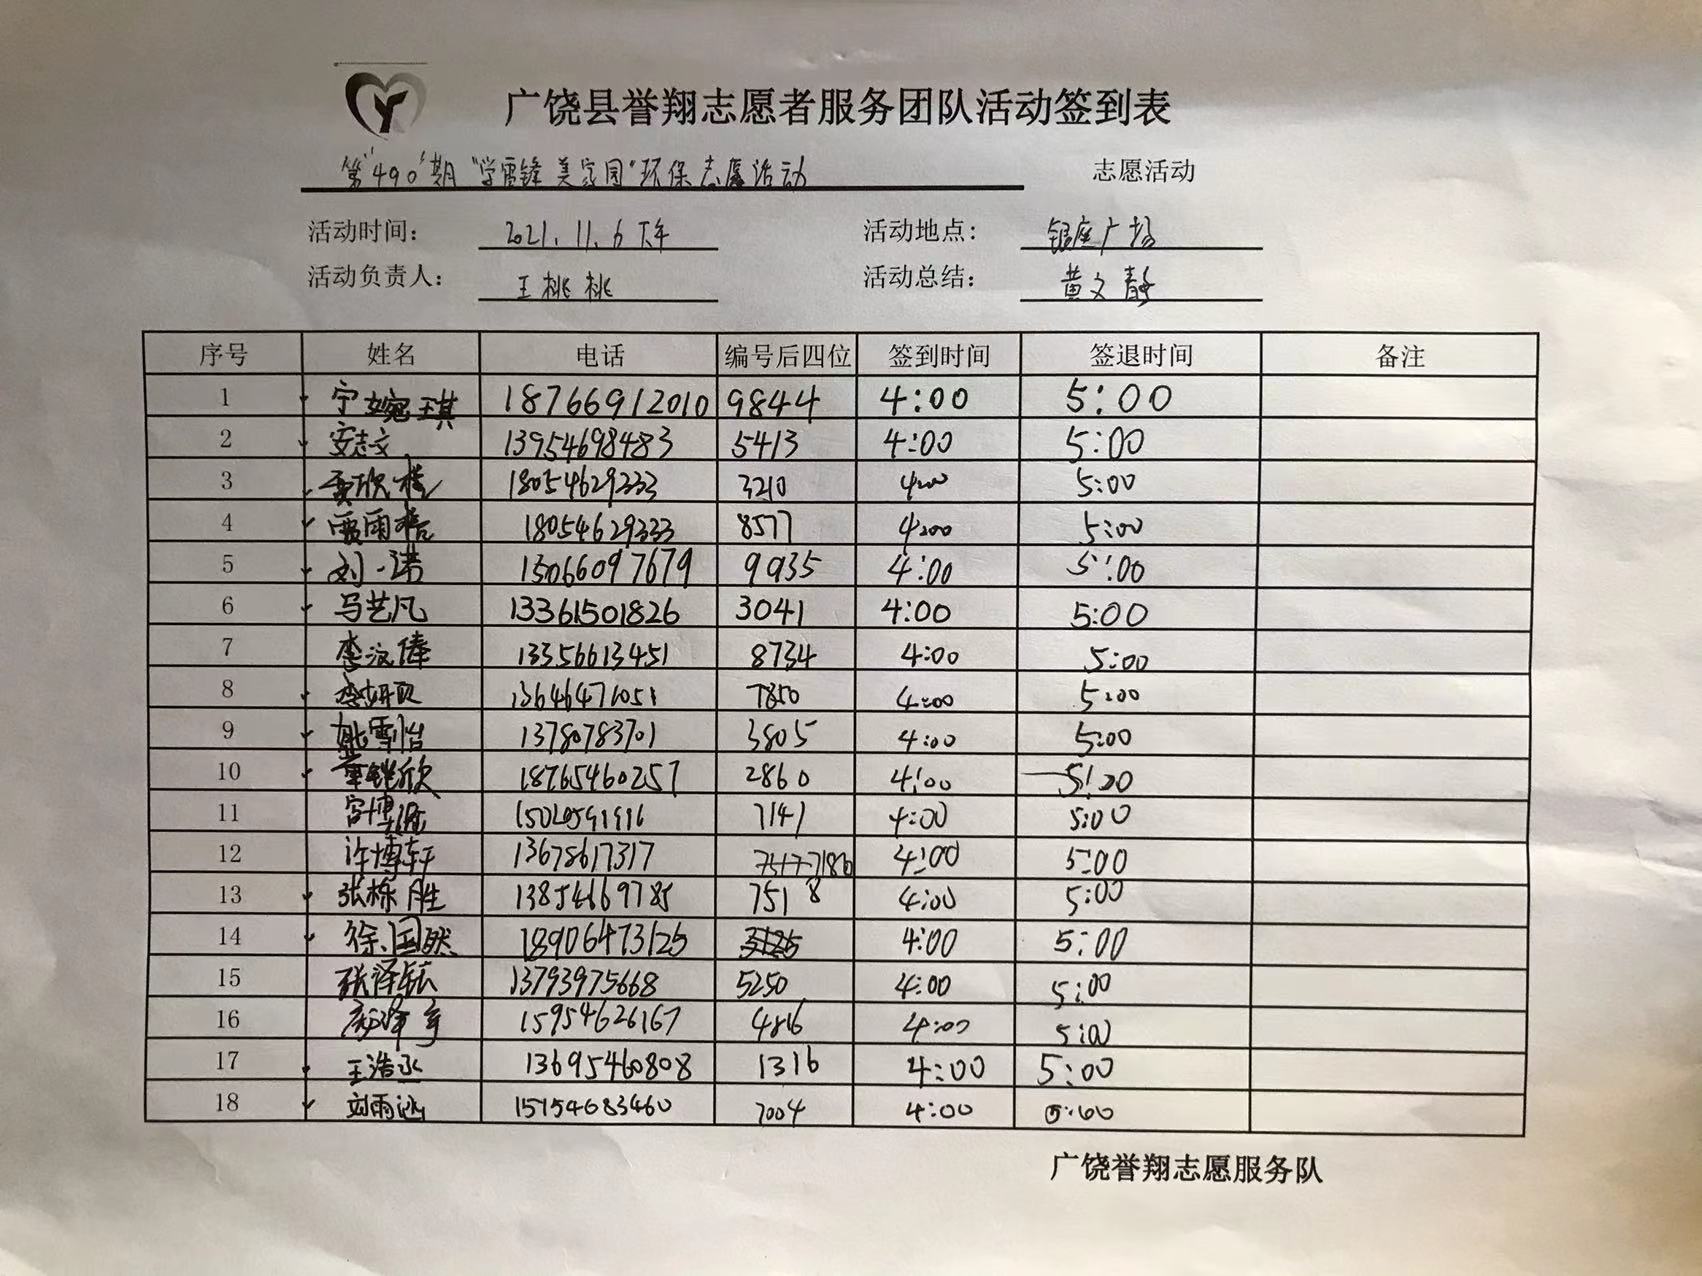 广饶县誉翔志愿者服务团队活动签到表
第"490"期"学雷锋 美家园"环保志愿活动 志愿活动
活动时间: 2021.11.6 下午 活动地点: 银座广场
活动负责人: 王桃桃 活动总结: 黄文静
序号 姓名 电话 编号后四位 签到时间 签退时间 备注
1 宁婉琪 18766912010 9844 4:00 5:00
2 安志文 13954698483 5413 4:00 5:00
3 18054629333 3210 4:00 5:00
4 18054629333 8577 4:00 5:00
5 刘一诺 15066097679 9935 4:00 5:00
6 马艺凡 13361501826 3041 4:00 5:00
7 李汶俸 13356613451 8734 4:00 5:00
8 13646471051 7850 4:00 5:00
9 姚雪怡 13780783701 3805 4:00 5:00
10 18765460257 2860 4:00 5:00
11 宫博源 15020591996 7141 4:00 5:00
12 许博轩 13678617317 7180 4:00 5:00
13 张栎胜 13854669785 7518 4:00 5:00
14 徐国然 18906473125 4:00 5:00
15 张泽钰 13793975668 5250 4:00 5:00
16 15954626167 4816 4:00 5:00
17 王浩丞 13695460808 1316 4:00 5:00
18 刘雨涵 15154683460 7004 4:00 5:00
广饶誉翔志愿服务队